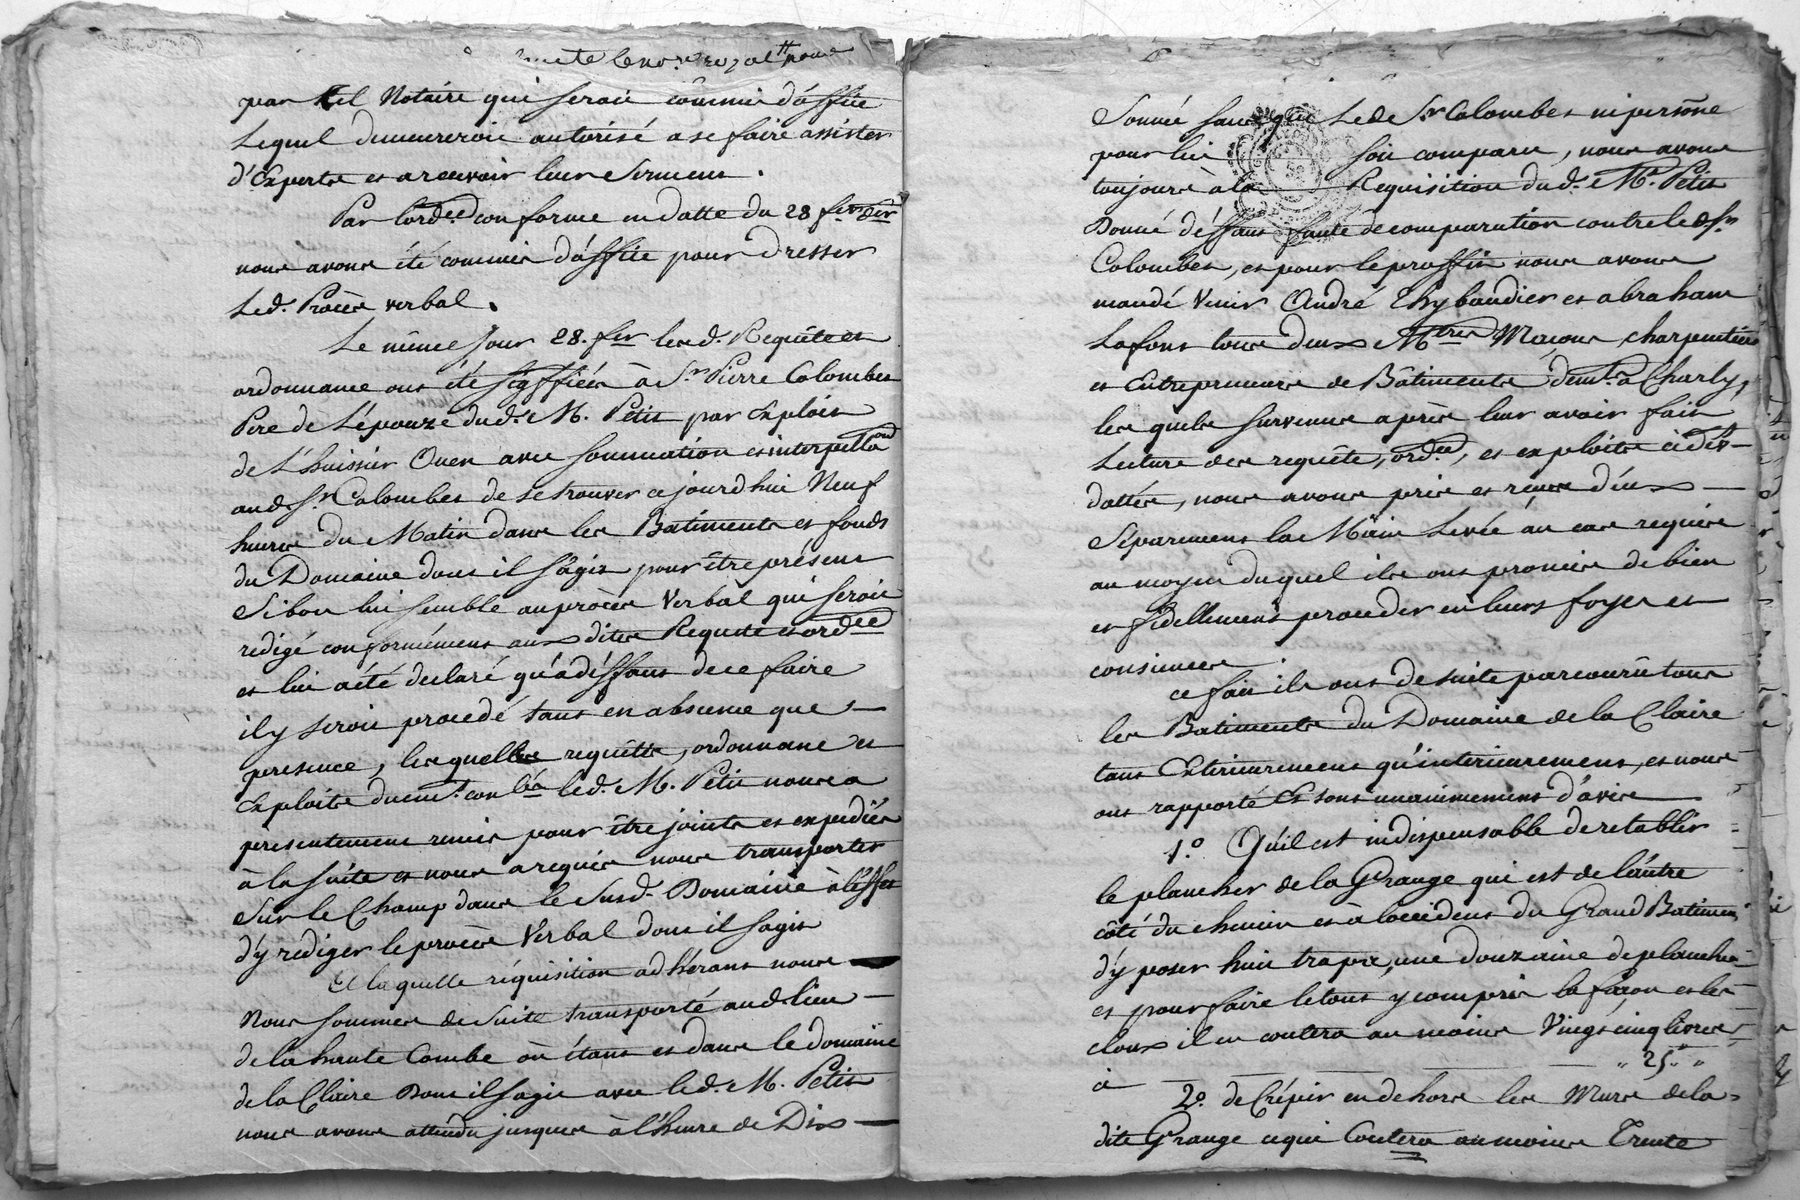 par tel Notaire qui seroit commis d'office
Lequel demeureroit autorisé a se faire assister
d'Experts et a recevoir leur Serment.
Par lord.ce conforme en datte du 28 fer der
nous avons été commis d'office pour dresser
Led. Procès verbal.
Le même jour 28. fer lesd. Requête et
ordonnance ont été signiffiées à Sr Pierre Colombet
Pere de L'épouze dud. M. Petit par Exploit
de L'huissier Ouen avec sommation et interpellaon
aud. Sr. Colombet de se trouver cejourdhui Neuf
heures du Matin dans les Batiments et fonds
du Domaine dont il s'agit pour être présent
Si bon lui semble au procès Verbal qui seroit
redigé conformément aux dites Requete et ordce
et lui a été declaré qu'à déffaut de ce faire
il y seroit procedé tant en absence que
presence, lesquelles requêtte, ordonnance et
Exploits duemt. con lés led. M. Petit nous a
présentement remis pour être joints et expediés
à la suite et nous a requis nous transporter
Sur le Champ dans le Susd. Domaine à l'effet
d'y rediger le procès Verbal dont il s'agit
Et laquelle réquisition adhérant nous
Nous sommes de suite transporté aud. lieu
de la haute Combe où étant et dans le domaine
de la Claire Dont il s'agit avec led. M. Petit
nous avons attendu jusques à l'heure de Dix
Sonnée sans que Le de Sr Colombet ni persone
pour lui soit comparu, nous avons
toujours à la Requisition dud. Me. Petit
Donné déffaut faute de comparution contre led. Sr
Colombet, et pour le proffit nous avons
mandé Venir André Thybaudier et abraham
Lafont tous deux Mtres Maçons charpentiers
et Entrepreneurs de Bâtiments demt. à Charly,
les quels survenus après leur avoir fait
Lecture des requête, ordce, et exploits ci des
dattés, nous avons pris et reçus d'eux
Séparement la Main Levée au cas requise
au moyen duquel ils ont promis de bien
et fidellement proceder en leurs foyes et
consciences.
ce fait ils ont de suite parcouru tous
les Batiments du Domaine de la Claire
tant Exterieurement qu'interieurement, et nous
ont rapporté Et sont unanimement d'avis
1.° Qu'il est indispensable de retablir
le plancher de la Grange qui est de l'autre
côté du chemin et à l'occident du Grand Batiment
d'y poser huit trapes, une douzaine de planches
et pour faire le tout y compris la façon et les
cloux il en coutera au moins Vingt cinq livres
ci 25
2.° de Crépir en dehors les Murs de la
dite Grange ce qui Coutera au moins Trente